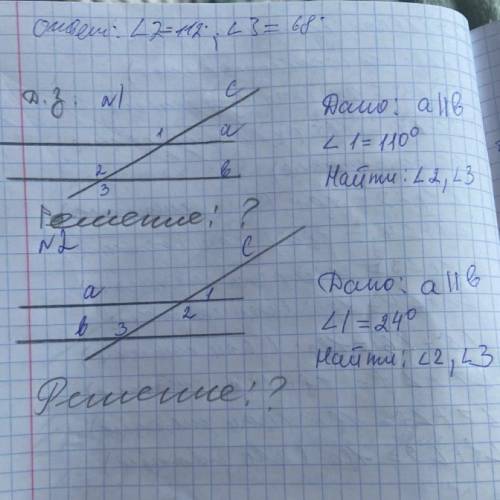 Ответ: ∠2=112°; ∠3=68°
Д.З: №1
c
1
a
2
b
3
Дано: a||b
∠1=110°
Найти: ∠2, ∠3
Решение: ?
№2
c
a
1
2
b
3
Дано: a||b
∠1=24°
Найти: ∠2, ∠3
Решение: ?